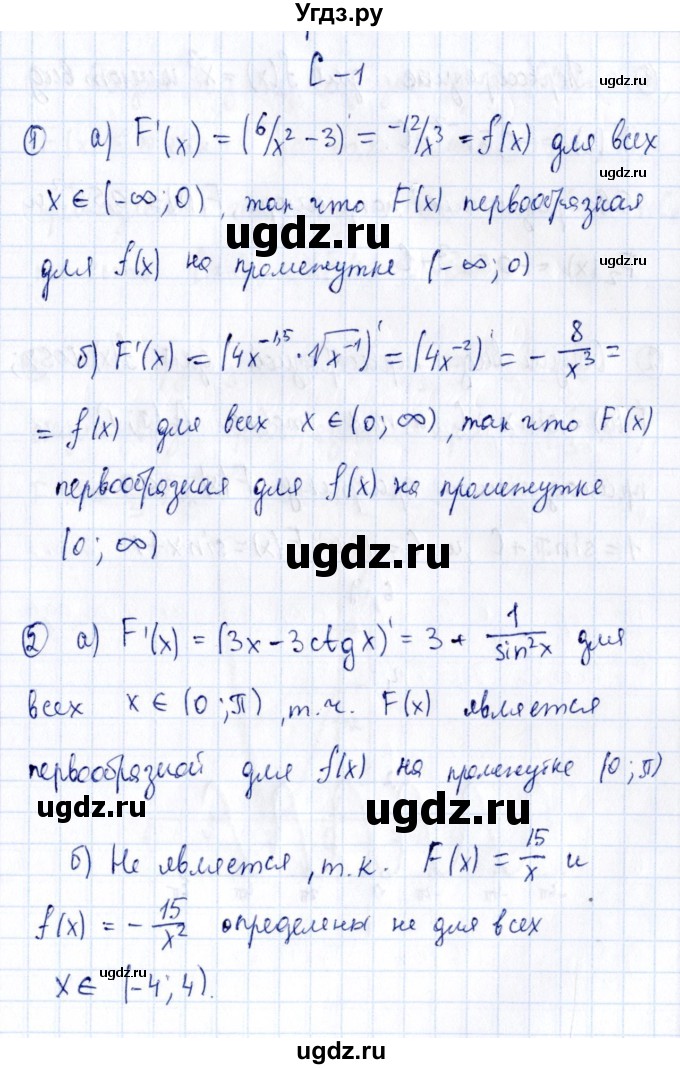 Угдз.ру
С-1
ugdz.ru
① а) F'(x) = (6/x² - 3)' = -12/x³ = f(x) для всех
ugdz.ru
x ∈ (-∞; 0), так что F(x) первообразная
ugdz.ru
ugdz.ru
для f(x) на промежутке (-∞; 0)
б) F'(x) = (4x^-1,5 · √x^-1)' = (4x^-2)' = - 8/x³ =
= f(x) для всех x ∈ (0; ∞), так что F(x)
первообразная для f(x) на промежутке
(0; ∞)
ugdz.ru
ugdz.ru
② а) F'(x) = (3x - 3ctg x)' = 3 + 1/sin²x для
всех x ∈ (0; π), т.ч. F(x) является
первообразной для f(x) на промежутке (0; π)
ugdz.ru
ugdz.ru
б) Не является, т.к. F(x) = 15/x и
f(x) = - 15/x² определены не для всех
ugdz.ru
x ∈ (-4; 4).
ugdz.ru
ugdz.ru